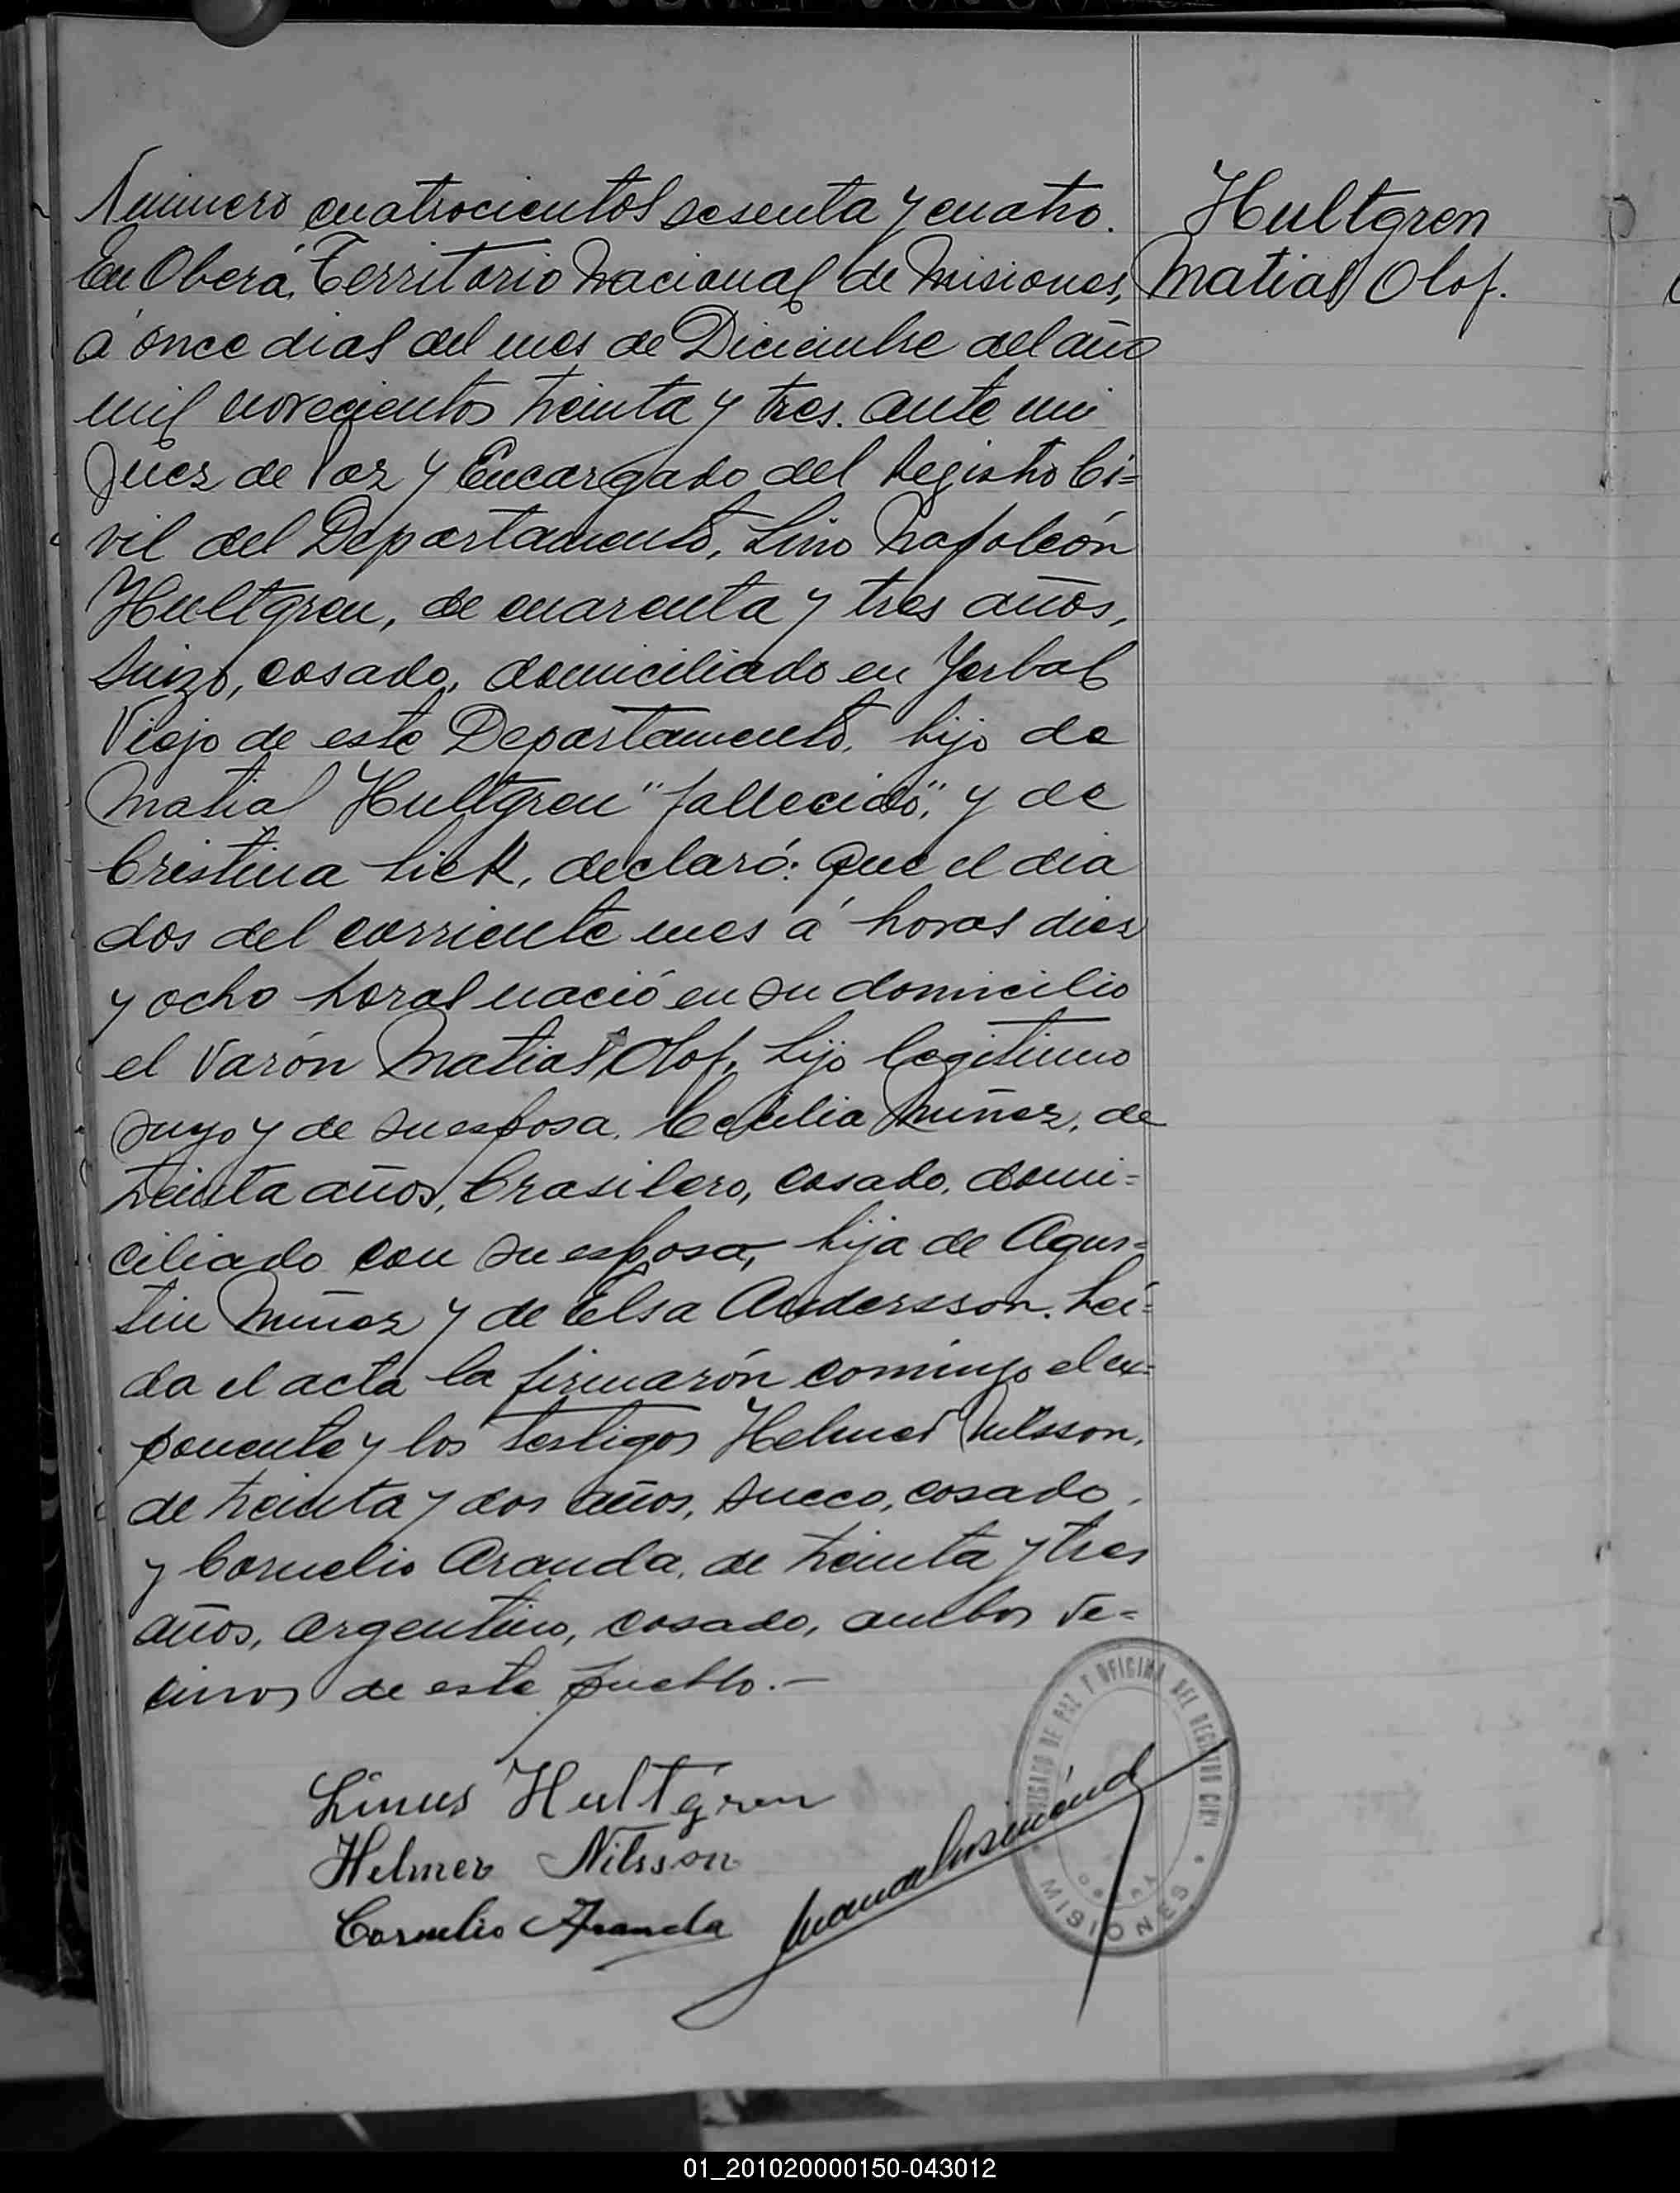 Número cuatrocientos sesenta y cuatro.
Hultgren
En Oberá, Territorio Nacional de Misiones,
Matias Olof.
á once dias del mes de Diciembre del año
mil novecientos treinta y tres. ante mi
Juez de Paz y Encargado del Registro Ci=
vil del Departamento, Lino Napoleón
Hultgren, de cuarenta y tres años,
Suizo, casado, domiciliado en Yerbal
Viejo de este Departamento, hijo de
Matia Hultgren "fallecido", y de
Cristina Lick, declaró: Que el dia
dos del corriente mes á horas diez
y ocho horas nació en su domicilio
el varón Matias Olof, hijo legitimo
suyo y de su esposa, Cecilia Muñoz, de
treinta años, brasilero, casado, domi=
ciliado con su esposa, hija de Agus=
tin Muñoz y de Elsa Andersson. Lei=
da el acta la firmarón comigo el ex=
ponente y los testigos Helmer Nilsson,
de treinta y dos años, sueco, casado,
y Cornelio Aranda, de treinta y tres
años, argentino, casado, ambos ve=
cinos de este pueblo.—
Linus Hultgren
Helmer Nilsson
Cornelio Aranda
JUZGADO DE PAZ Y OFICINA DEL REGISTRO CIVIL
OBERÁ
MISIONES
01_201020000150-043012